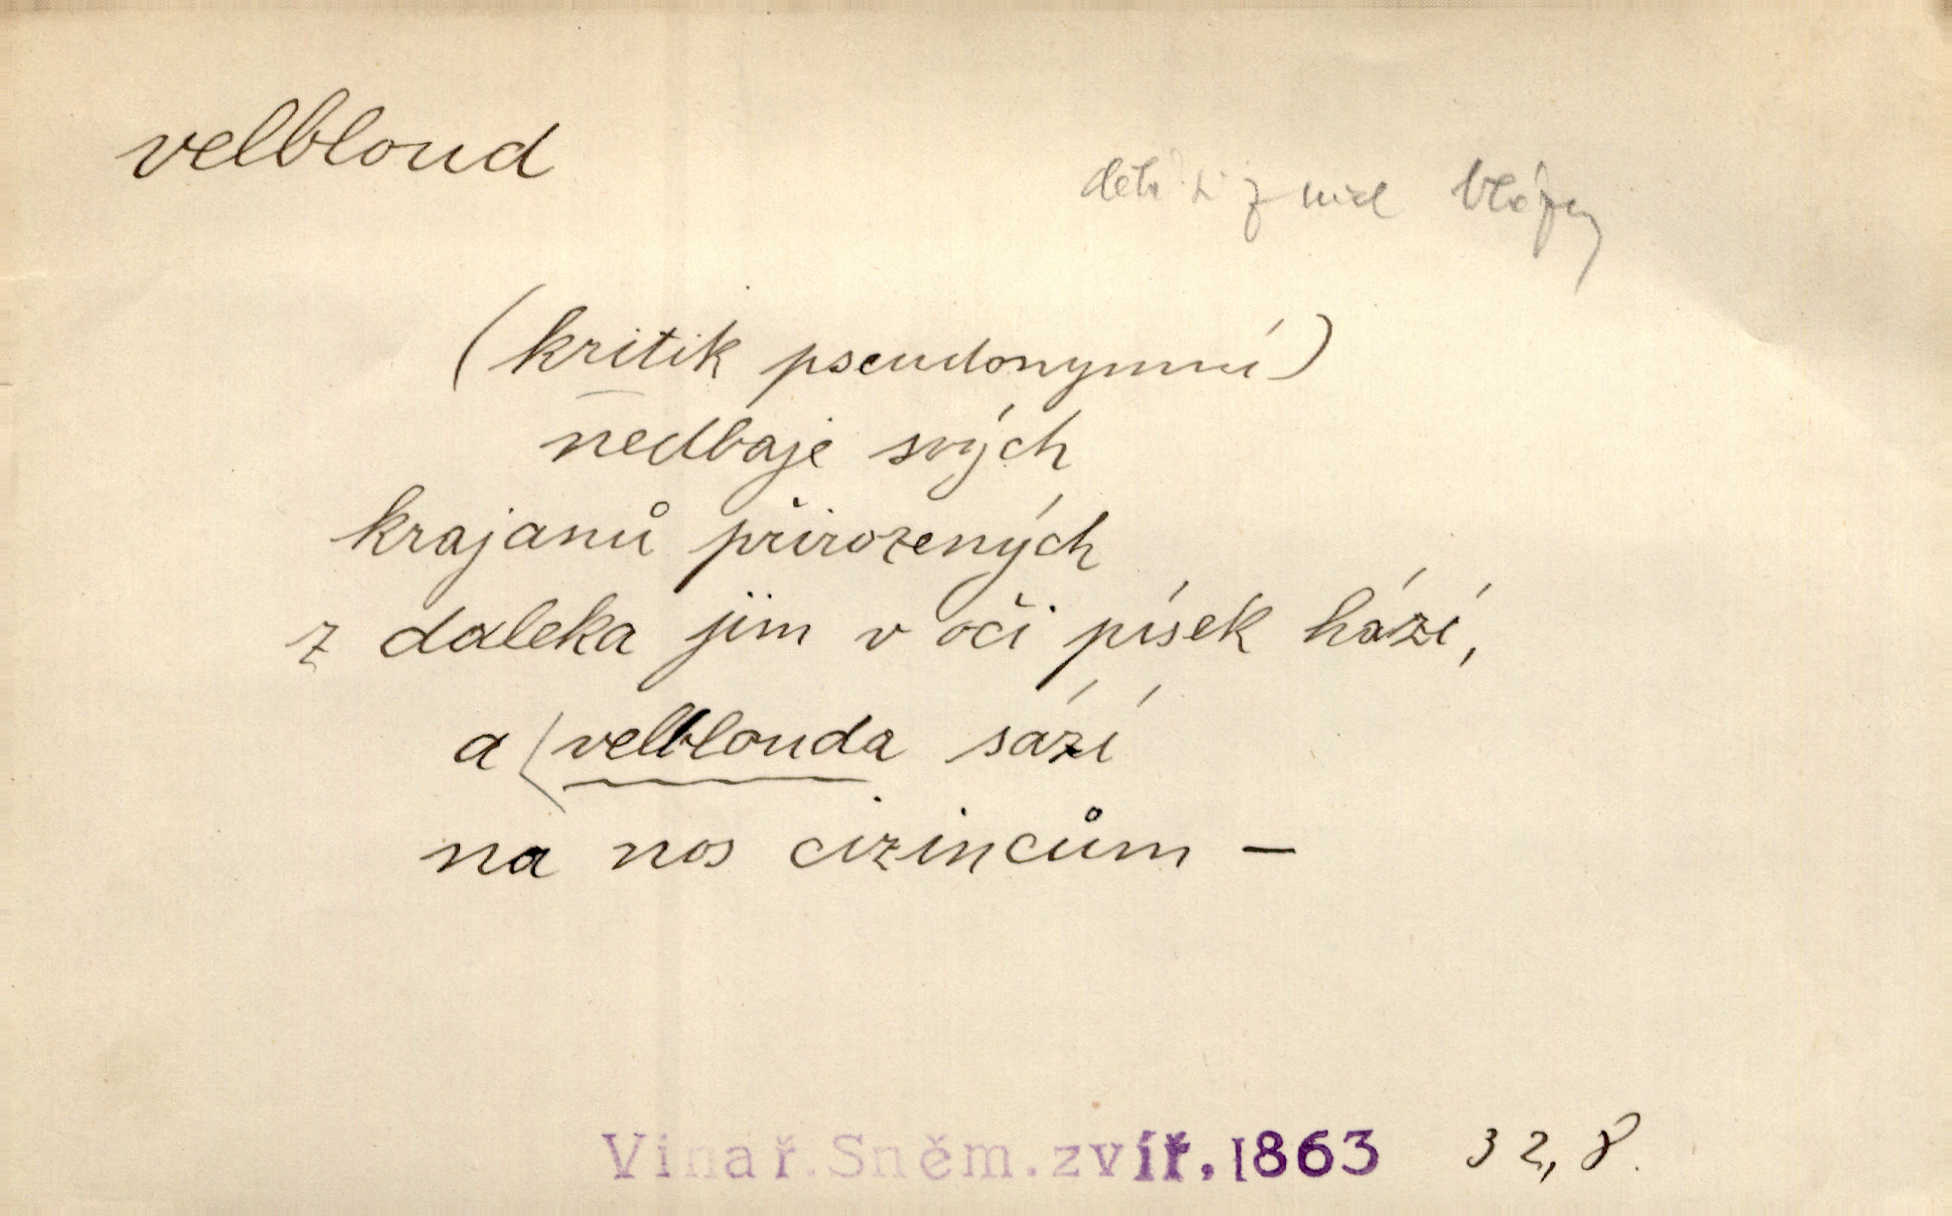 velbloud
z nich blázny
(kritik pseudonymní)
nedbaje svých
krajanů přirozených
z daleka jim v oči písek hází,
a velblouda sází
na nos cizincům –
Vinař.Sněm.zvíř.1863 32,8.